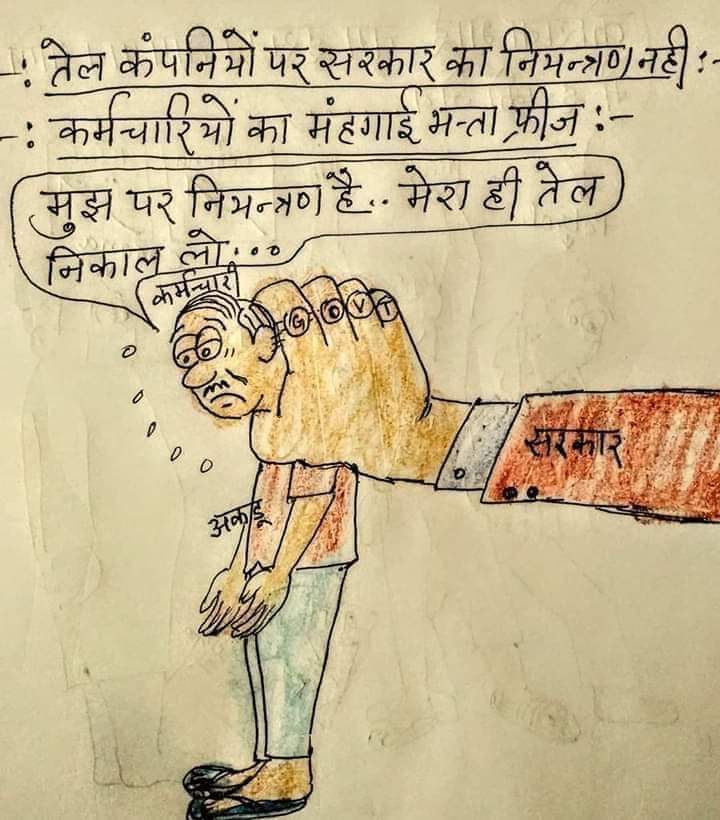 -: तेल कंपनियों पर सरकार का नियन्त्रण नही :-
-: कर्मचारियों का मंहगाई भत्ता फ़्रीज :-
मुझ पर नियन्त्रण है.. मेरा ही तेल
निकाल लो...
कर्मचारी
GOVT
सरकार
अकडू